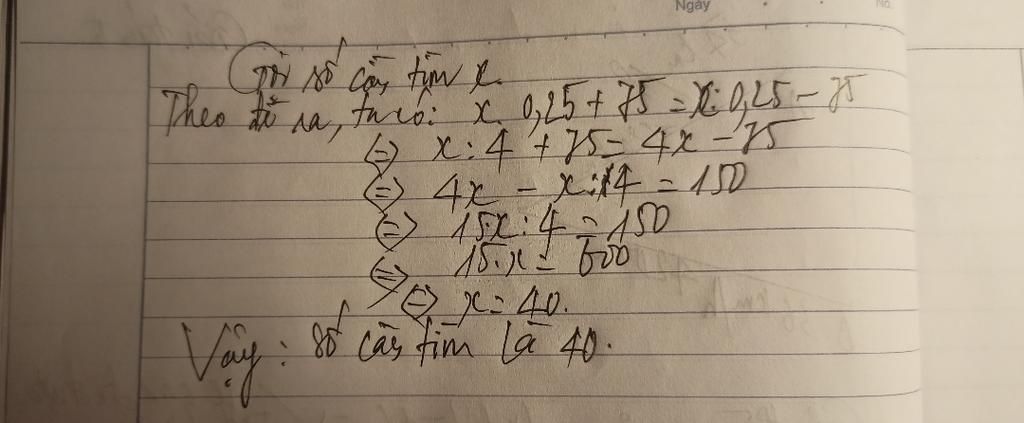 Ngày
No.
Gọi số cần tìm x.
Theo đề ra, ta có: x. 0,25 + 75 = x: 0,25 - 75
<=> x : 4 + 75 = 4x - 75
<=> 4x - x : 4 = 150
<=> 15x : 4 = 150
<=> 15.x = 600
<=> x = 40.
Vậy: số cần tìm là 40.